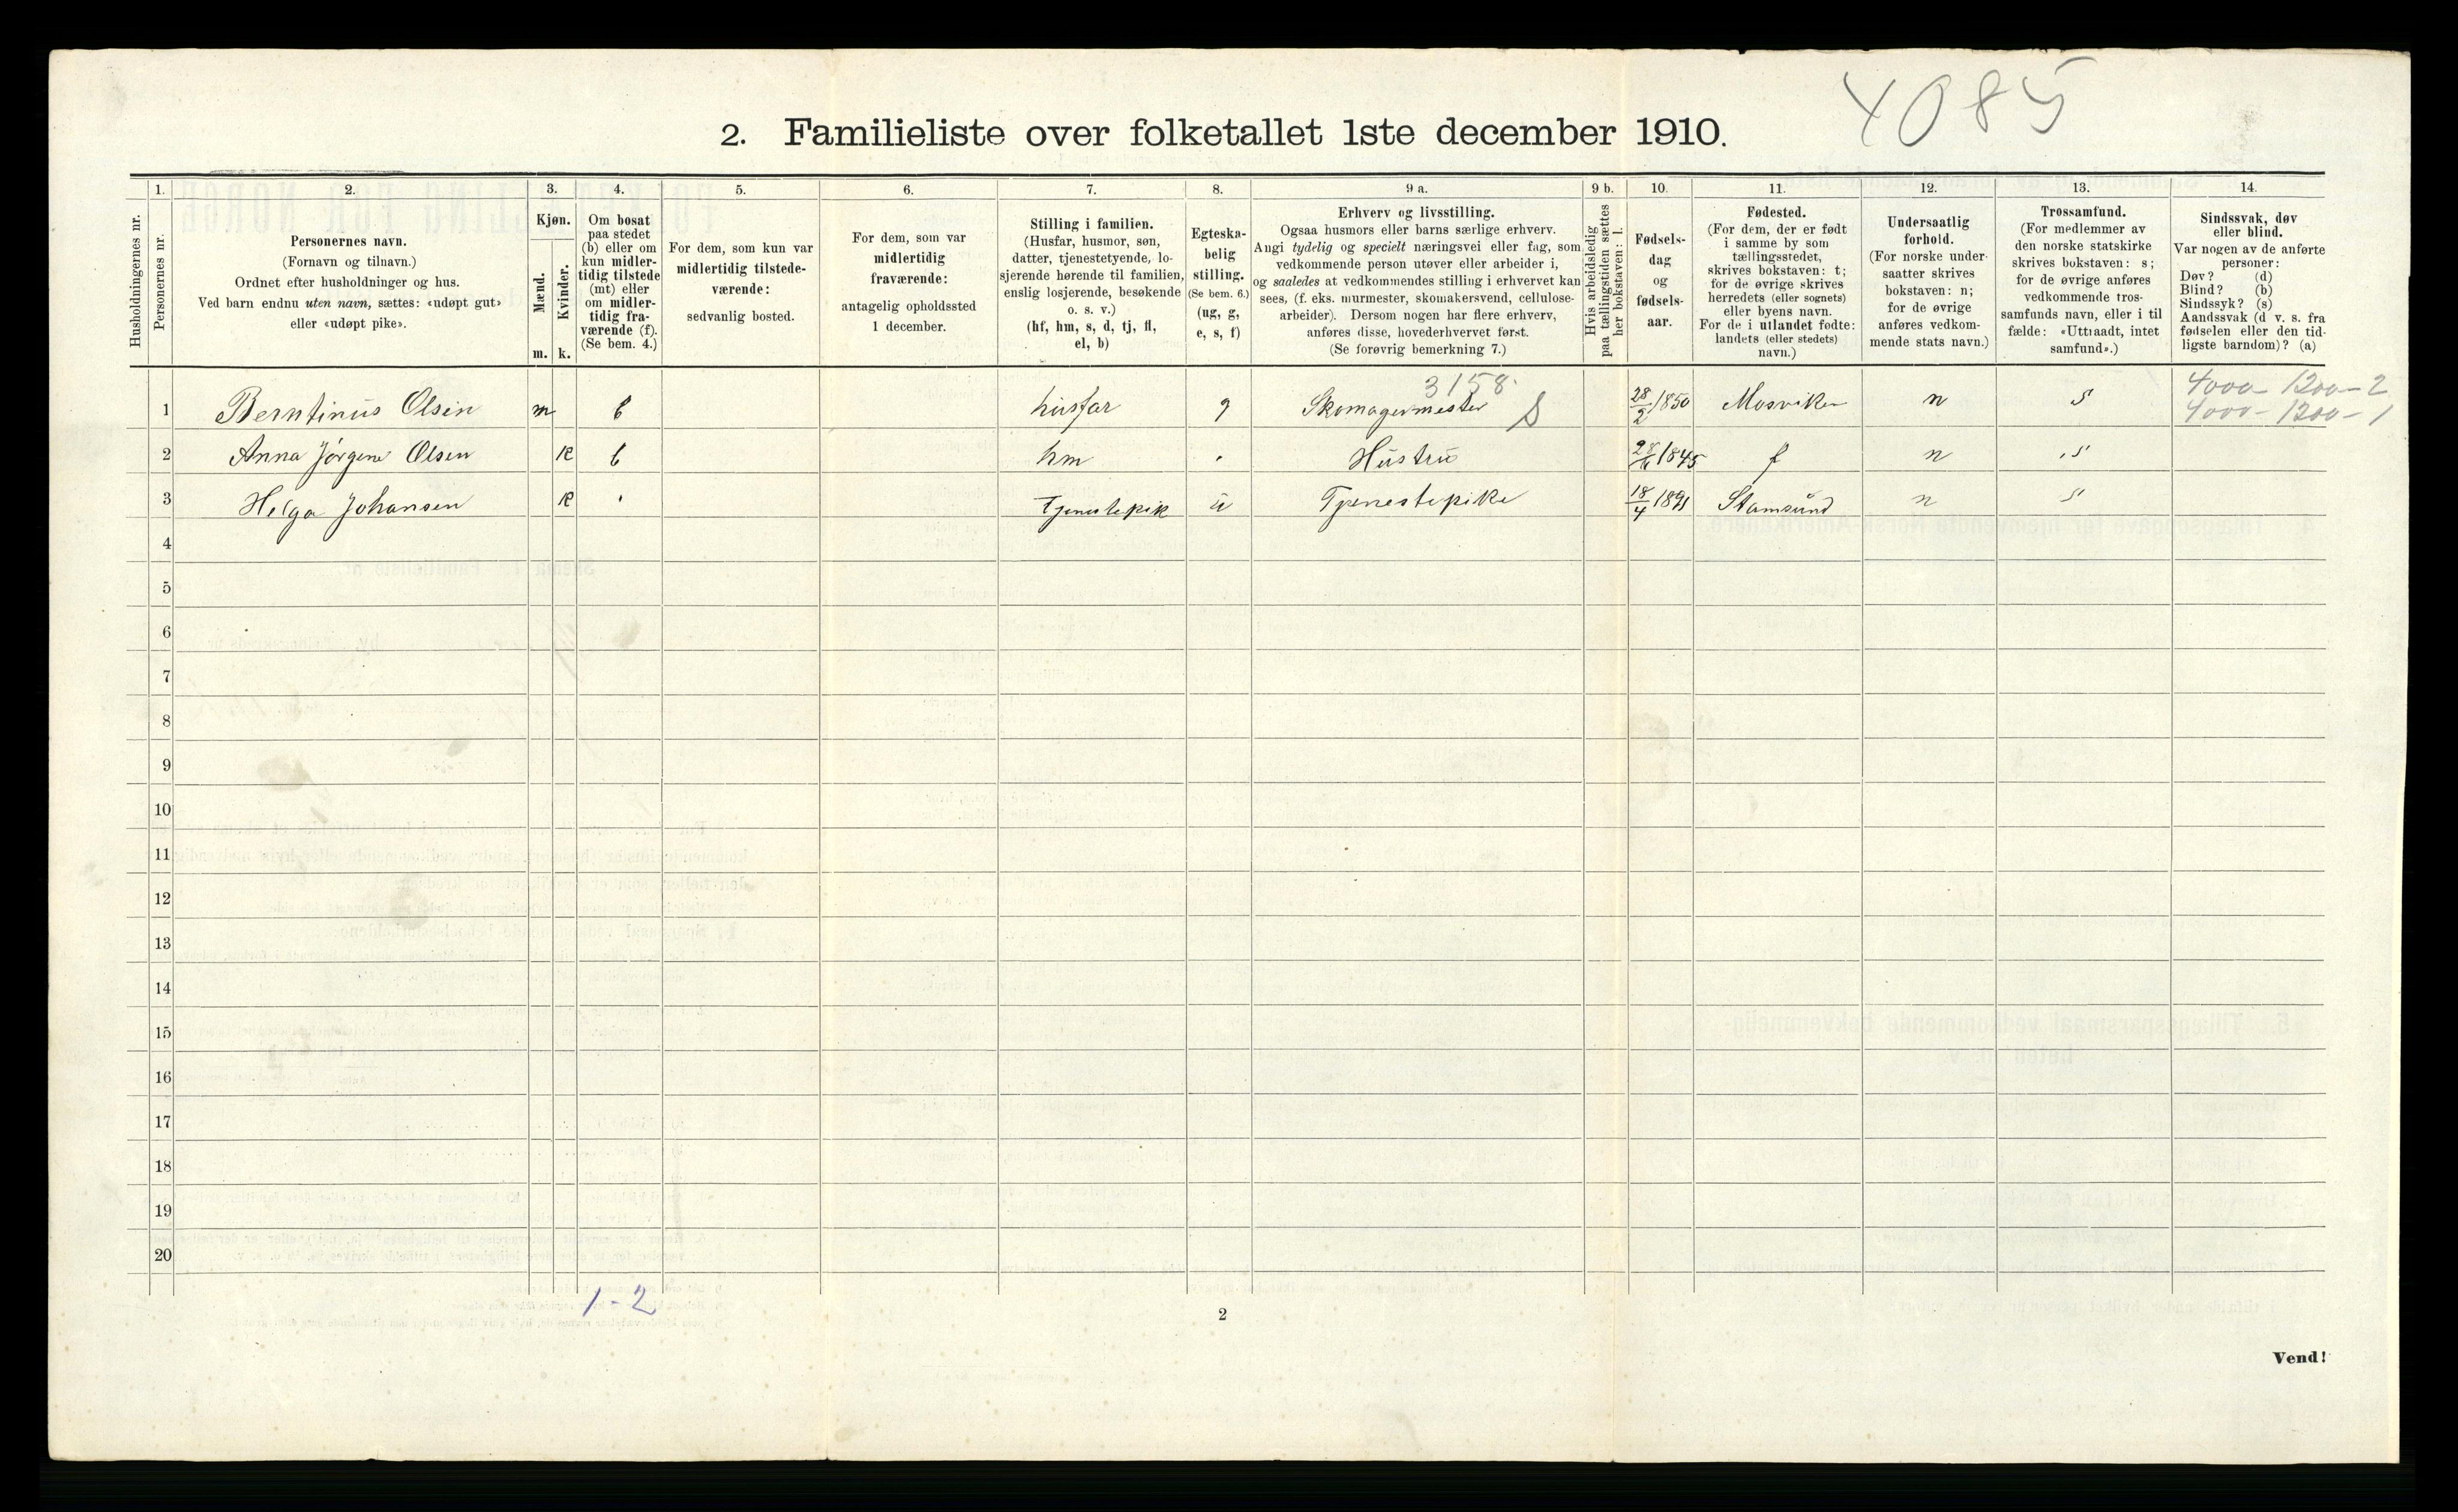 4085
2. Familieliste over folketallet 1ste december 1910.
Husholdningernes nr.
1.
Personernes nr.
2.
Personernes navn.
(Fornavn og tilnavn.)
Ordnet efter husholdninger og hus.
Ved barn endnu uten navn, sættes: «udøpt gut»
eller «udøpt pike».
3.
Kjøn.
Mænd.
Kvinder.
m. k.
4.
Om bosat
paa stedet
(b) eller om
kun midler-
tidig tilstede
(mt) eller
om midler-
tidig fra-
værende (f).
(Se bem. 4.)
5.
For dem, som kun var
midlertidig tilstede-
værende:
sedvanlig bosted.
6.
For dem, som var
midlertidig
fraværende:
antagelig opholdssted
1 december.
7.
Stilling i familien.
(Husfar, husmor, søn,
datter, tjenestetyende, lo-
sjerende hørende til familien,
enslig losjerende, besøkende
o. s. v.)
(hf, hm, s, d, tj, fl,
el, b)
8.
Egteska-
belig
stilling.
(Se bem. 6.)
(ug, g,
e, s, f)
9 a.
Erhverv og livsstilling.
Ogsaa husmors eller barns særlige erhverv.
Angi tydelig og specielt næringsvei eller fag, som
vedkommende person utøver eller arbeider i,
og saaledes at vedkommendes stilling i erhvervet kan
sees, (f. eks. murmester, skomakersvend, cellulose-
arbeider). Dersom nogen har flere erhverv,
anføres disse, hovederhvervet først.
(Se forøvrig bemerkning 7.)
9 b.
Hvis arbeidsledig
paa tællingstiden sættes
her bokstaven: l.
10.
Fødsels-
dag
og
fødsels-
aar.
11.
Fødested.
(For dem, der er født
i samme by som
tællingsstedet,
skrives bokstaven: t;
for de øvrige skrives
herredets (eller sognets)
eller byens navn.
For de i utlandet fødte:
landets (eller stedets)
navn.)
12.
Undersaatlig
forhold.
(For norske under-
saatter skrives
bokstaven: n;
for de øvrige
anføres vedkom-
mende stats navn.)
13.
Trossamfund.
(For medlemmer av
den norske statskirke
skrives bokstaven: s;
for de øvrige anføres
vedkommende tros-
samfunds navn, eller i til
fælde: «Uttraadt, intet
samfund».)
14.
Sindssvak, døv
eller blind.
Var nogen av de anførte
personer:
Døv? (d)
Blind? (b)
Sindssyk? (s)
Aandssvak (d v. s. fra
fødselen eller den tid-
ligste barndom)? (a)
3158 4000 - 1200 - 2
1 Berntinus Olsen m b husfar g Skomagermester S 28/2 1850 Mosviken n s 4000 - 1200 - 1
2 Anna Jørgene Olsen k b hm Hustru 1845 n s
3 Helga Johansen k Tjenestepik u Tjenestepike 18/4 1891 Stamsund n s
4
5
6
7
8
9
10
11
12
13
14
15
16
17
18
19
20
1 - 2
2
Vend!